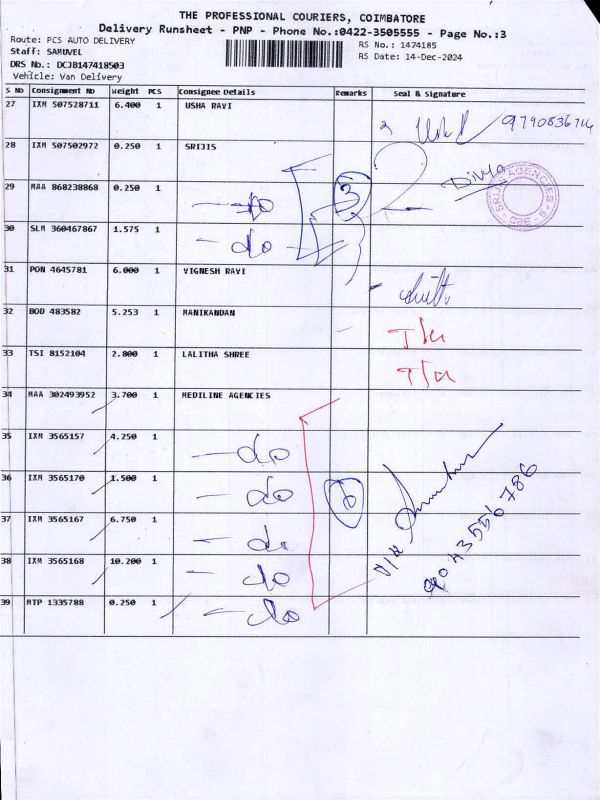 THE PROFESSIONAL COURIERS, COIMBATORE
Delivery Runsheet - PNP - Phone No.:0422-3505555 - Page No.:3
Route: PCS AUTO DELIVERY
RS No.: 1474185
Staff: SAMUVEL
RS Date: 14-Dec-2024
DRS No.: DCJB147418503
Vehicle: Van Delivery
S No Consignment No Weight PCS Consignee Details Remarks Seal & Signature
27 IXM 507528711 6.400 1 USHA RAVI
28 IXM 507502972 0.250 1 SRIJIS
Divya
29 MAA 868238868 0.250 1 - do 3
SRIJI AGENCIES
CBE
30 SLM 360467867 1.575 1 - do
31 PON 4645781 6.000 1 VIGNESH RAVI
32 BOD 483582 5.253 1 MANIKANDAN
33 TSI 8152104 2.800 1 LALITHA SHREE
34 MAA 302493952 3.700 1 MEDILINE AGENCIES
35 IXM 3565157 4.250 1 - do
36 IXM 3565170 1.500 1 - do 6
37 IXM 3565167 6.750 1 - do
38 IXM 3565168 10.200 1 - do
39 MTP 1335788 0.250 1 - do